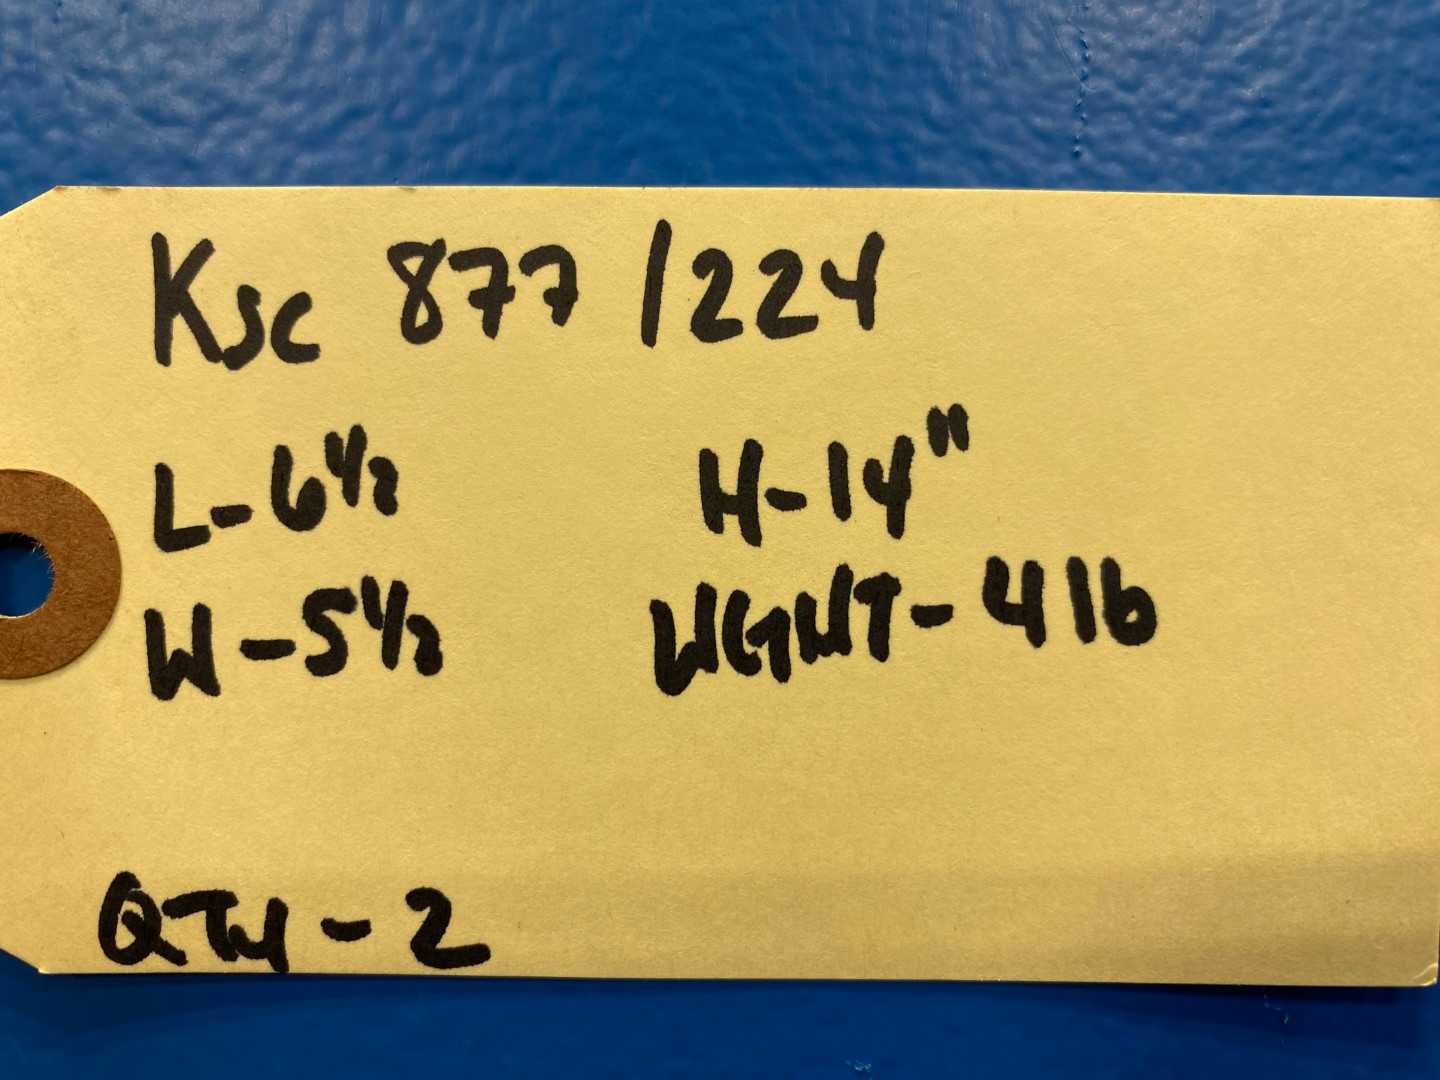 Ksc 877/224
L-6 1/2 H-14"
W-5 1/2 WGHT-4 lb
QTY-2